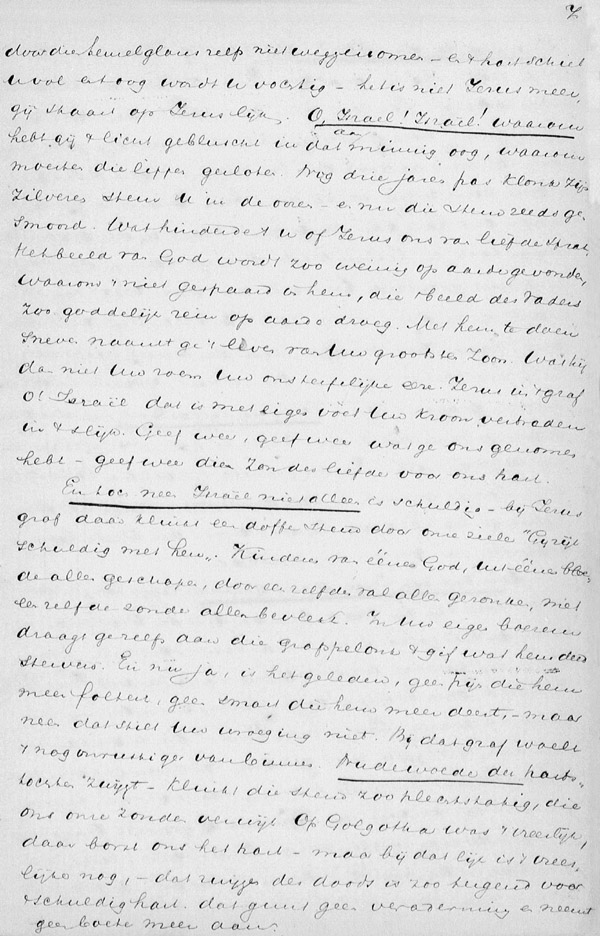 7
door die hemelglans zelf niet weggenomen – en 't hart schiet
u vol en 't oog wordt u vochtig – het is niet Jezus meer,
gij staart op Jezus lijk. O, Israel! Israel! waarom
hebt gij 't licht gebluscht in dat minnig oog, waarom
moesten die lippen gesloten. Nog drie jaren pas klonk zijn
zilveren stem u in de ooren – en nu die stem reeds ge-
smoord. Wat hinderde 't u of Jezus ons van liefde sprak,
Het beeld van God wordt zoo weinig op aarde gevonden,
waarom 't niet gespaard in hem, die 't beeld des Vaders
zoo goddelijk rein op aarde droeg. Met hem te dooden
Sneven naamt ge 't leven van Uw grootsten Zoon. Was hij
dan niet Uw roem Uw onsterfelijke eere. Jezus in 't graf
O! Israël dat is met eigen voet Uw kroon vertreden
in 't slijk. Geef weer, geef weer wat ge ons genomen
hebt – geef weer dien Zoon der liefde voor ons hart.
En toch neen Israël niet alleen is schuldig – bij Jezus
graf daar klinkt een doffe stem door onze ziele "Gij zijt
schuldig met hen". Kinderen van éénen God, uit éénen bloe-
de allen geschapen, door een zelfden val allen gezonken, met
een zelfde zonde allen bevlekt. In Uw eigen boezem
draagt ge zelf aan die grappelone & gif wat hem deed
sterven. En nu ja, is het geleden, geen pijn die hem
meer foltert, geen smart die hem meer deert, – maar
neen dat stilt Uw wroeging niet. Bij dat graf woelt
't nog onrustiger van binnen. Nu de woede der harts-
tochten zwijgt – klinkt die stem zoo plechtstatig, die
ons onze zonden verwijt. Op Golgotha was 't vreeslijk,
daar borst ons het hart – maar bij dat lijk is 't vrees-
lijker nog, – dat zwijgen des doods is zoo tergend voor
't schuldig hart. dat gunt geen verademing en neemt
geen boete meer aan.